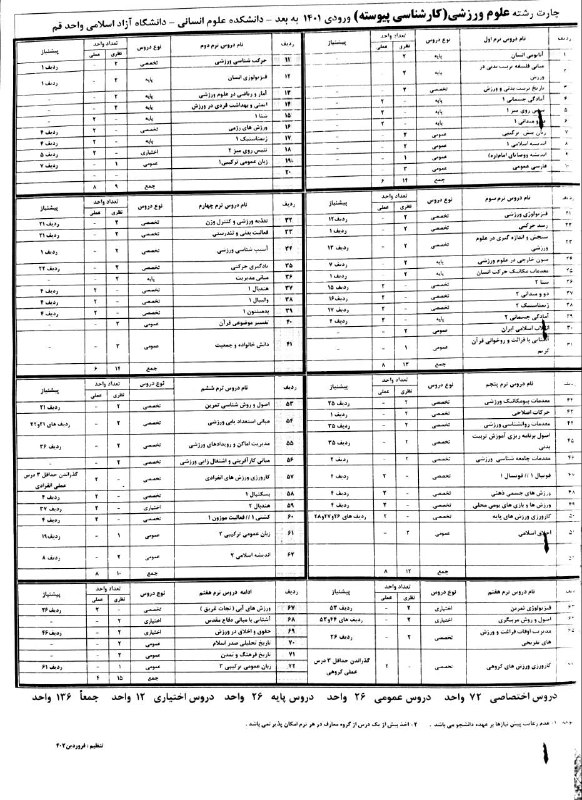 چارت رشته علوم ورزشی(کارشناسی پیوسته) ورودی ۱۴۰۱ به بعد - دانشکده علوم انسانی - دانشگاه آزاد اسلامی واحد قم
ردیف نام دروس ترم اول نوع دروس تعداد واحد نظری عملی پیشنیاز
آناتومی انسان پایه ۲ -
مبانی فلسفه تربیت بدنی در ورزش پایه ۲ -
تاریخ تربیت بدنی و ورزش تخصصی ۲ -
آمادگی جسمانی ۱ پایه - ۲
تنیس روی میز ۱ پایه - ۲
دو و میدانی ۱ پایه - ۲
زبان پیش ترکیبی عمومی ۲ -
اندیشه اسلامی ۱ عمومی ۲ -
اندیشه ووصایای امام(ره) عمومی
فارسی عمومی عمومی ۳ -
جمع ۱۴ ۶
ردیف نام دروس ترم دوم نوع دروس تعداد واحد نظری عملی پیشنیاز
۱۱ حرکت شناسی ورزشی تخصصی ۲ - ردیف ۱
۱۲ فیزیولوژی انسان پایه ۲ - ردیف ۱
۱۳ آمار و ریاضی در علوم ورزشی پایه ۲ -
۱۴ ایمنی و بهداشت فردی در ورزش پایه ۲ -
۱۵ شنا ۱ پایه - ۲
۱۶ ورزش های رزمی تخصصی - ۲ ردیف ۴
۱۷ ژیمناستیک ۱ پایه - ۲ ردیف ۴
۱۸ تنیس روی میز ۲ اختیاری - ۲ ردیف ۵
۱۹ زبان عمومی ترکیبی۱ عمومی ۱ - ردیف ۷
۲۰
جمع ۹ ۸
ردیف نام دروس ترم سوم نوع دروس تعداد واحد نظری عملی پیشنیاز
۲۱ فیزیولوژی ورزشی تخصصی ۲ - ردیف ۱۲
رشد حرکتی تخصصی ۲ - ردیف ۱
سنجش و اندازه گیری در علوم ورزشی تخصصی ۲ - ردیف ۱۳
متون خارجی در علوم ورزشی تخصصی ۲ - ردیف ۷
مقدمات مکانیک حرکت انسان پایه ۲ - ردیف ۱
شنا ۲ تخصصی - ۲ ردیف ۱۵
دو و میدانی ۲ تخصصی - ۲ ردیف ۱۶
ژیمناستیک ۲ تخصصی - ۲ ردیف ۱۷
آمادگی جسمانی ۲ پایه - ۲ ردیف ۴
انقلاب اسلامی ایران عمومی ۲ -
آشنایی با قرائت و روخوانی قرآن کریم عمومی ۱ -
جمع ۱۳ ۸
ردیف نام دروس ترم چهارم نوع دروس تعداد واحد نظری عملی پیشنیاز
۳۲ تغذیه ورزشی و کنترل وزن تخصصی ۲ - ردیف ۲۱
۳۳ فعالیت بدنی و تندرستی تخصصی ۲ - ردیف ۲۱
۳۴ آسیب شناسی ورزشی تخصصی ۲ - ردیف ۱
۳۵ یادگیری حرکتی تخصصی ۲ - ردیف ۲۲
۳۶ مبانی مدیریت پایه ۲ -
۳۷ هندبال ۱ تخصصی - ۲ ردیف ۴
۳۸ والیبال ۱ تخصصی - ۲ ردیف ۴
۳۹ بدمینتون ۱ تخصصی - ۲ ردیف ۴
۴۰ تفسیر موضوعی قرآن عمومی ۲ -
۴۱ دانش خانواده و جمعیت عمومی ۲ -
جمع ۱۴ ۶
ردیف نام دروس ترم پنجم نوع دروس تعداد واحد نظری عملی پیشنیاز
مقدمات بیومکانیک ورزشی تخصصی ۲ - ردیف ۲۵
حرکات اصلاحی تخصصی ردیف ۱
مقدمات روانشناسی ورزشی تخصصی ۲ - ردیف ۳۵
اصول برنامه ریزی آموزش تربیت بدنی تخصصی ۲ - ردیف ۳۵
مقدمات جامعه شناسی ورزشی تخصصی ۲ - ردیف ۲
فوتبال ۱ // فوتسال ۱ تخصصی - ۲ ردیف ۴
ورزش های جسمی ذهنی تخصصی - ۲ ردیف ۴
ورزش ها و بازی های بومی محلی تخصصی - ۲ ردیف ۴
کارورزی ورزش های پایه تخصصی - ۲ ردیف های ۲۶و۲۷و۲۸
اخلاق اسلامی عمومی ۲ -
جمع ۱۲ ۸
ردیف نام دروس ترم ششم نوع دروس تعداد واحد نظری عملی پیشنیاز
۵۳ اصول و روش شناسی تمرین تخصصی ۲ - ردیف ۲۱
۵۴ مبانی استعداد یابی ورزشی تخصصی ۲ - ردیف های ۲۱و۴۲
۵۵ مدیریت اماکن و رویدادهای ورزشی تخصصی ۲ - ردیف ۳۶
۵۶ مبانی کارآفرینی و اشتغال زایی ورزشی تخصصی
۵۷ کارورزی ورزش های انفرادی تخصصی - ۲ گذراندن حداقل ۳ درس عملی انفرادی
۵۸ بسکتبال ۱ تخصصی - ۲ ردیف ۴
۵۹ هندبال ۲ اختیاری - ۲ ردیف ۳۷
۶۰ کشتی ۱ // فعالیت موزون ۱ تخصصی - ۲ ردیف ۴
۶۱ زبان عمومی ترکیبی ۲ عمومی ۱ - ردیف۱۹
۶۲ اندیشه اسلامی ۲ عمومی ۲ - ردیف ۸
جمع ۱۰ ۸
ردیف نام دروس ترم هفتم نوع دروس تعداد واحد نظری عملی پیشنیاز
فیزیولوژی تمرین اختیاری ۲ - ردیف ۵۳
اصول و روش مربیگری اختیاری ۲ - ردیف های ۴۴و۵۳
مدیریت اوقات فراغت و ورزش های تفریحی تخصصی ۲ - ردیف ۳۶
کارورزی ورزش های گروهی تخصصی - ۲ گذراندن حداقل ۳ درس عملی گروهی
ردیف ادامه دروس ترم هفتم نوع دروس تعداد واحد نظری عملی پیشنیاز
۶۷ ورزش های آبی ( نجات غریق ) تخصصی - ۲ ردیف ۲۶
۶۸ آشنایی با مبانی دفاع مقدس اختیاری ۲ -
۶۹ حقوق و اخلاق در ورزش اختیاری ۲ - ردیف ۴۶
۷۰ تاریخ تحلیلی صدر اسلام عمومی ۲ -
۷۱ تاریخ فرهنگ و تمدن عمومی ۲ -
۷۲ زبان عمومی ترکیبی ۳ عمومی ۱ - ردیف ۶۱
جمع ۱۵ ۴
دروس اختصاصی ۷۲ واحد دروس عمومی ۲۶ واحد دروس پایه ۲۶ واحد دروس اختیاری ۱۲ واحد جمعاً ۱۳۶ واحد
۱ - عدم رعایت پیش نیازها بر عهده دانشجو می باشد . ۲ - اخذ بیش از یک درس از گروه معارف در هر ترم امکان پذیر نمی باشد .
تنظیم : فروردین ۴۰۲